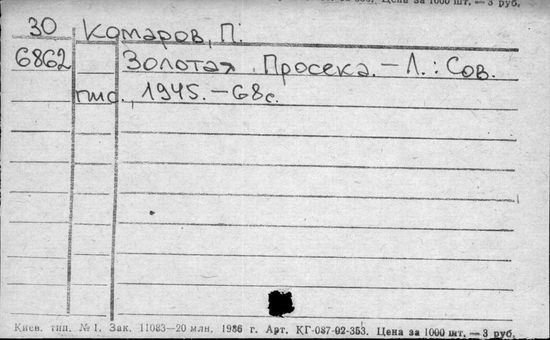 30 Комаров, П.
6862 Золотая Просека. – Л.: Сов.
пис., 1945. – 68 с.
Киев. тип. № 1. Зак. 11083—20 млн. 1986 г. Арт. КГ-087-02-353. Цена за 1000 шт. — 3 руб.